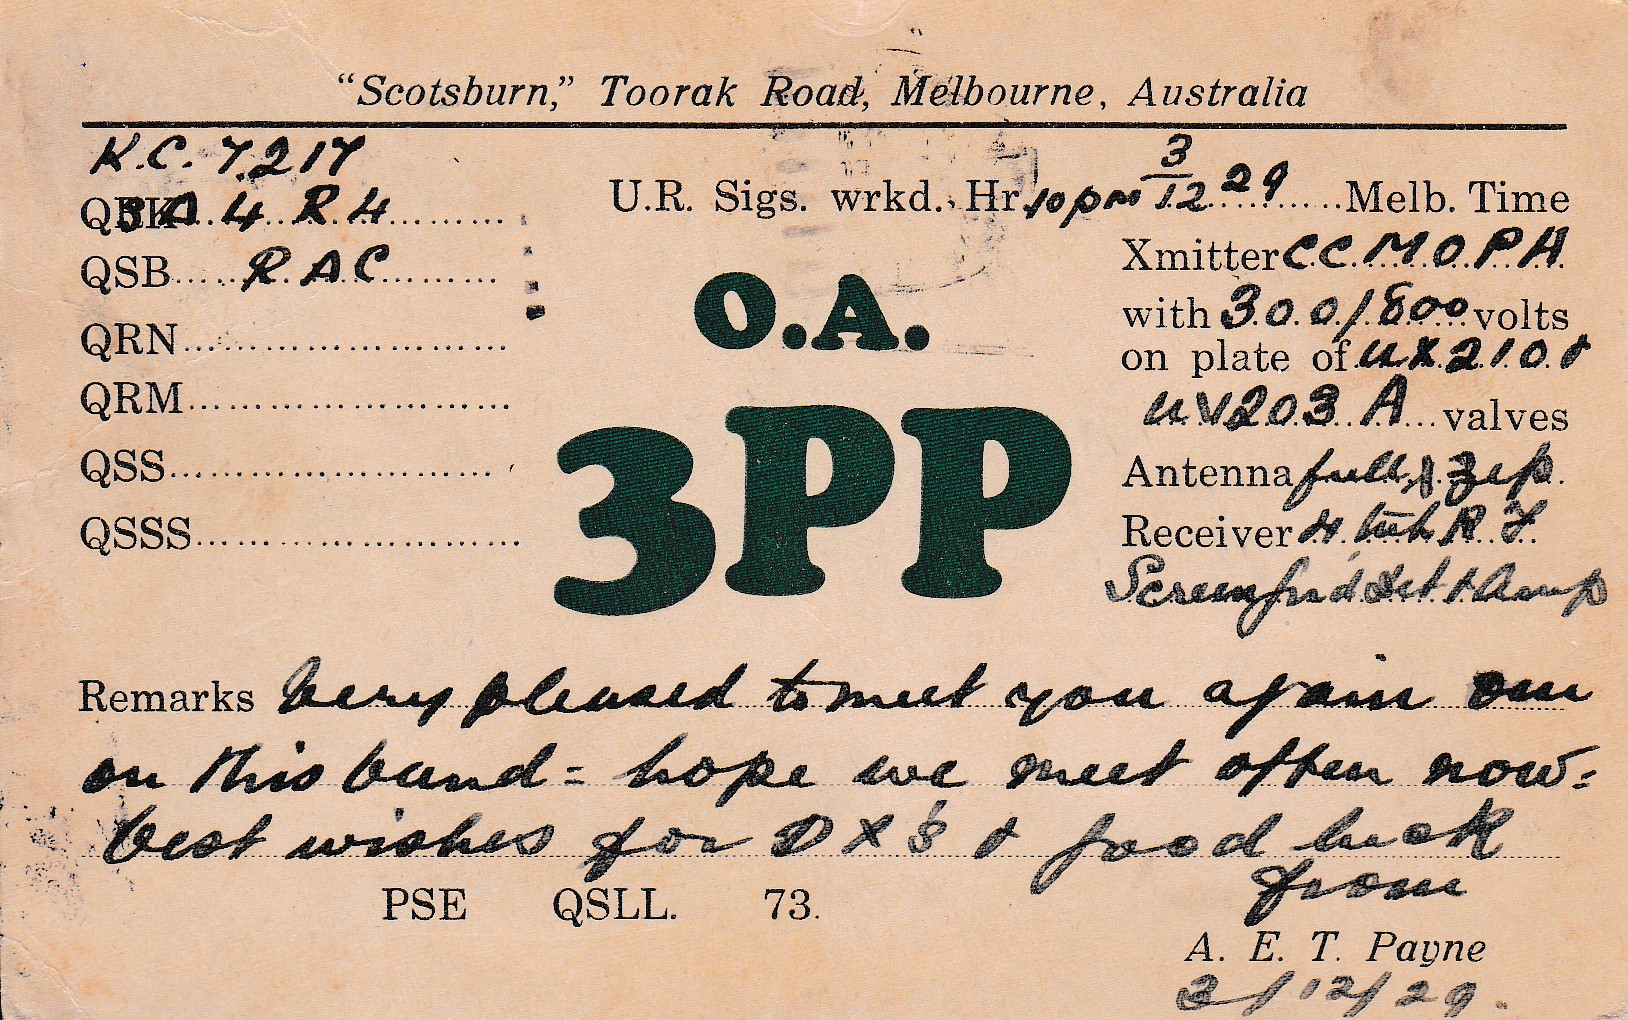 "Scotsburn," Toorak Road, Melbourne, Australia
K.C. 7.217
U.R. Sigs. wrkd. Hr. 10pm 3/12 29 Melb. Time
QRK 4 R4
QSB RAC
QRN
QRM
QSS
QSSS
O.A.
3PP
Xmitter CC MOPA
with 300/800 volts
on plate of UX210 &
UV203A valves
Antenna full zep.
Receiver 4 tube R F
Screengrid Det & Amp
Remarks Very pleased to meet you again
on this band = hope we meet often now =
best wishes for DX's & good luck
from
PSE QSLL. 73.
A. E. T. Payne
3/12/29.